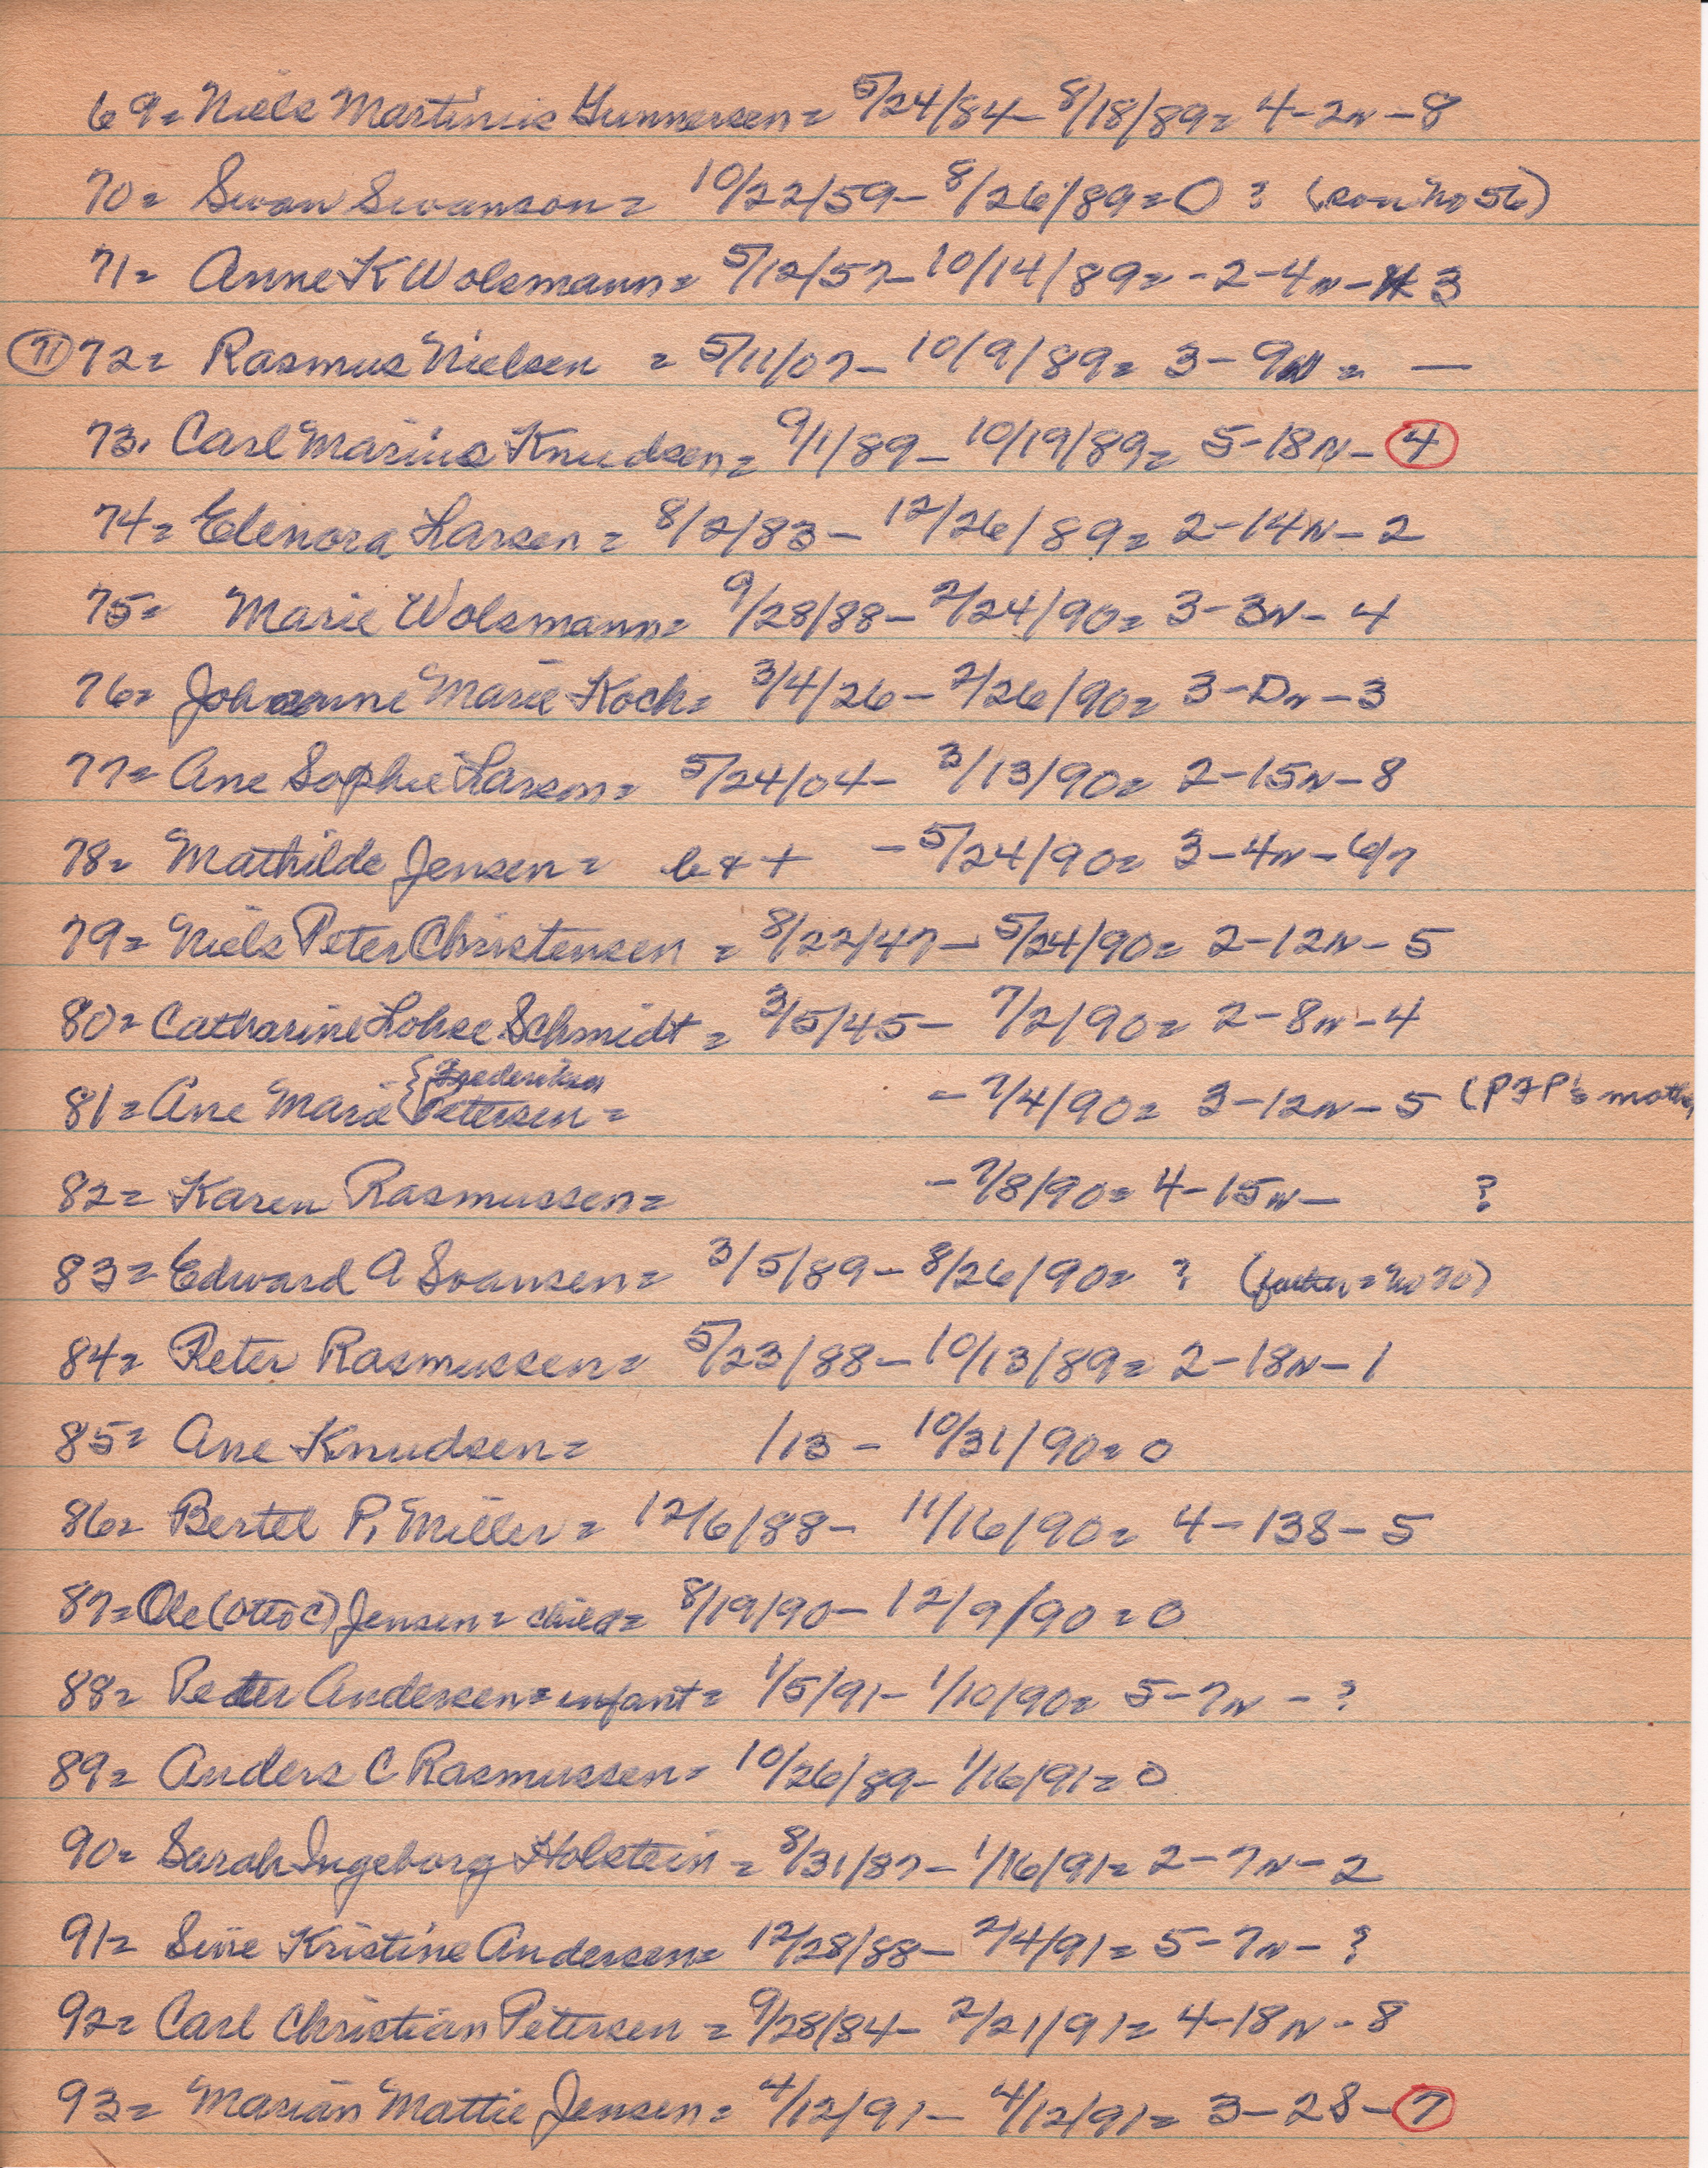 69= Niels Martinus Gunnersen= 5/24/84- 8/18/89= 4-2N-8
70= Swan Swanson= 10/22/59- 8/26/89=0 ? (son No 56)
71= Anne K Wolsmann= 5/12/57- 10/14/89= -2-4N- 3
(71) 72= Rasmus Nielsen = 5/11/07- 10/9/89= 3-9N= —
73. Carl Marius Knudsen= 9/1/89- 10/19/89= 5-18N- 4
74= Elenora Larsen= 8/2/83- 12/26/89= 2-14N-2
75= Marie Wolsmann= 9/28/88- 2/24/90= 3-3N- 4
76= Johanne Marie Koch= 3/4/26- 2/26/90= 3-DN-3
77= Ane Sophie Larson= 5/24/04- 3/13/90= 2-15N-8
78= Mathilde Jensen= - 5/24/90= 3-4N-6/7
79= Niels Peter Christensen = 8/22/47- 5/24/90= 2-12N-5
80= Catharine Lohse Schmidt= 3/5/45- 7/2/90= 2-8N-4
81= Ane Marie { Frederiksen Petersen= - 7/4/90= 3-12N-5 (PFP's mother
82= Karen Rasmussen= - 7/8/90= 4-15N- ?
83= Edward A Svansen= 3/5/89- 8/26/90= ? (father = No 70)
84= Peter Rasmussen= 5/23/88- 10/13/89= 2-18N-1
85= Ane Knudsen= /13 - 10/31/90=0
86= Bertel P. Miller= 12/6/88- 11/16/90= 4-13S-5
87= Ole (Otto C) Jensen= child= 8/19/90- 12/9/90=0
88= Peter Andersen= infant= 1/5/91- 1/10/90= 5-7N - ?
89= Anders C Rasmussen= 10/26/89- 1/16/91=0
90= Sarah Ingeborg Holstein= 8/31/87- 1/16/91= 2-7N-2
91= Sine Kristine Andersen= 12/28/88- 2/4/91= 5-7N- ?
92= Carl Christian Petersen = 9/28/84- 2/21/91= 4-18N-8
93= Marian Mattie Jensen= 4/12/91- 4/12/91= 3-2S-7